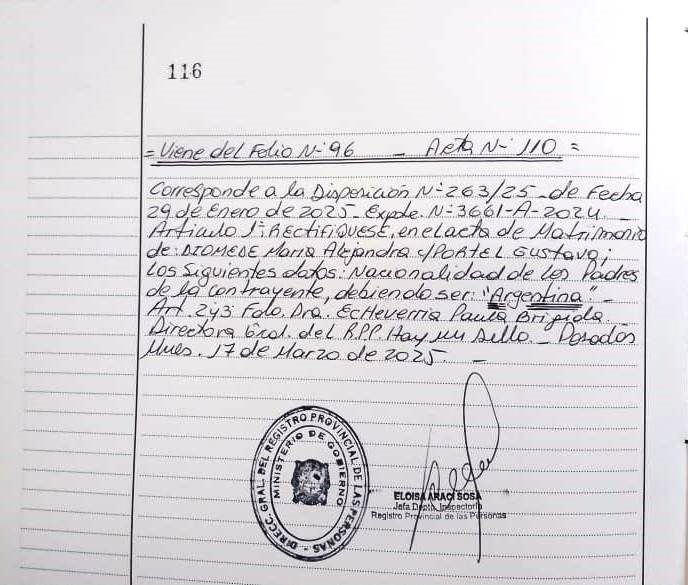 116
= Viene del Folio Nº 96 _ Acta Nº 110 =
Corresponde a la Disposición Nº 263/25 _ de Fecha
29 de Enero de 2025 _ Expde. Nº 3661-A-2024. _
Articulo 1º: RECTIFIQUESE, en el acta de Matrimonio
de: DIOMEDE Maria Alejandra c/PORTEL Gustavo;
Los Siguientes datos: Nacionalidad de Los Padres
de la Contrayente, debiendo ser: "Argentina" _
Art. 2y3 Fdo. Dra. Echeverria Paula Brigida _
Directora Gral. del R.P.P. Hay un Sello. _ Posadas
Mnes. 17 de Marzo de 2025. _
DIRECC. GRAL. DEL REGISTRO PROVINCIAL DE LAS PERSONAS -
MINISTERIO DE GOBIERNO
ELOISA ARACI SOSA
Jefa Depto. Inspectoría
Registro Provincial de las Personas